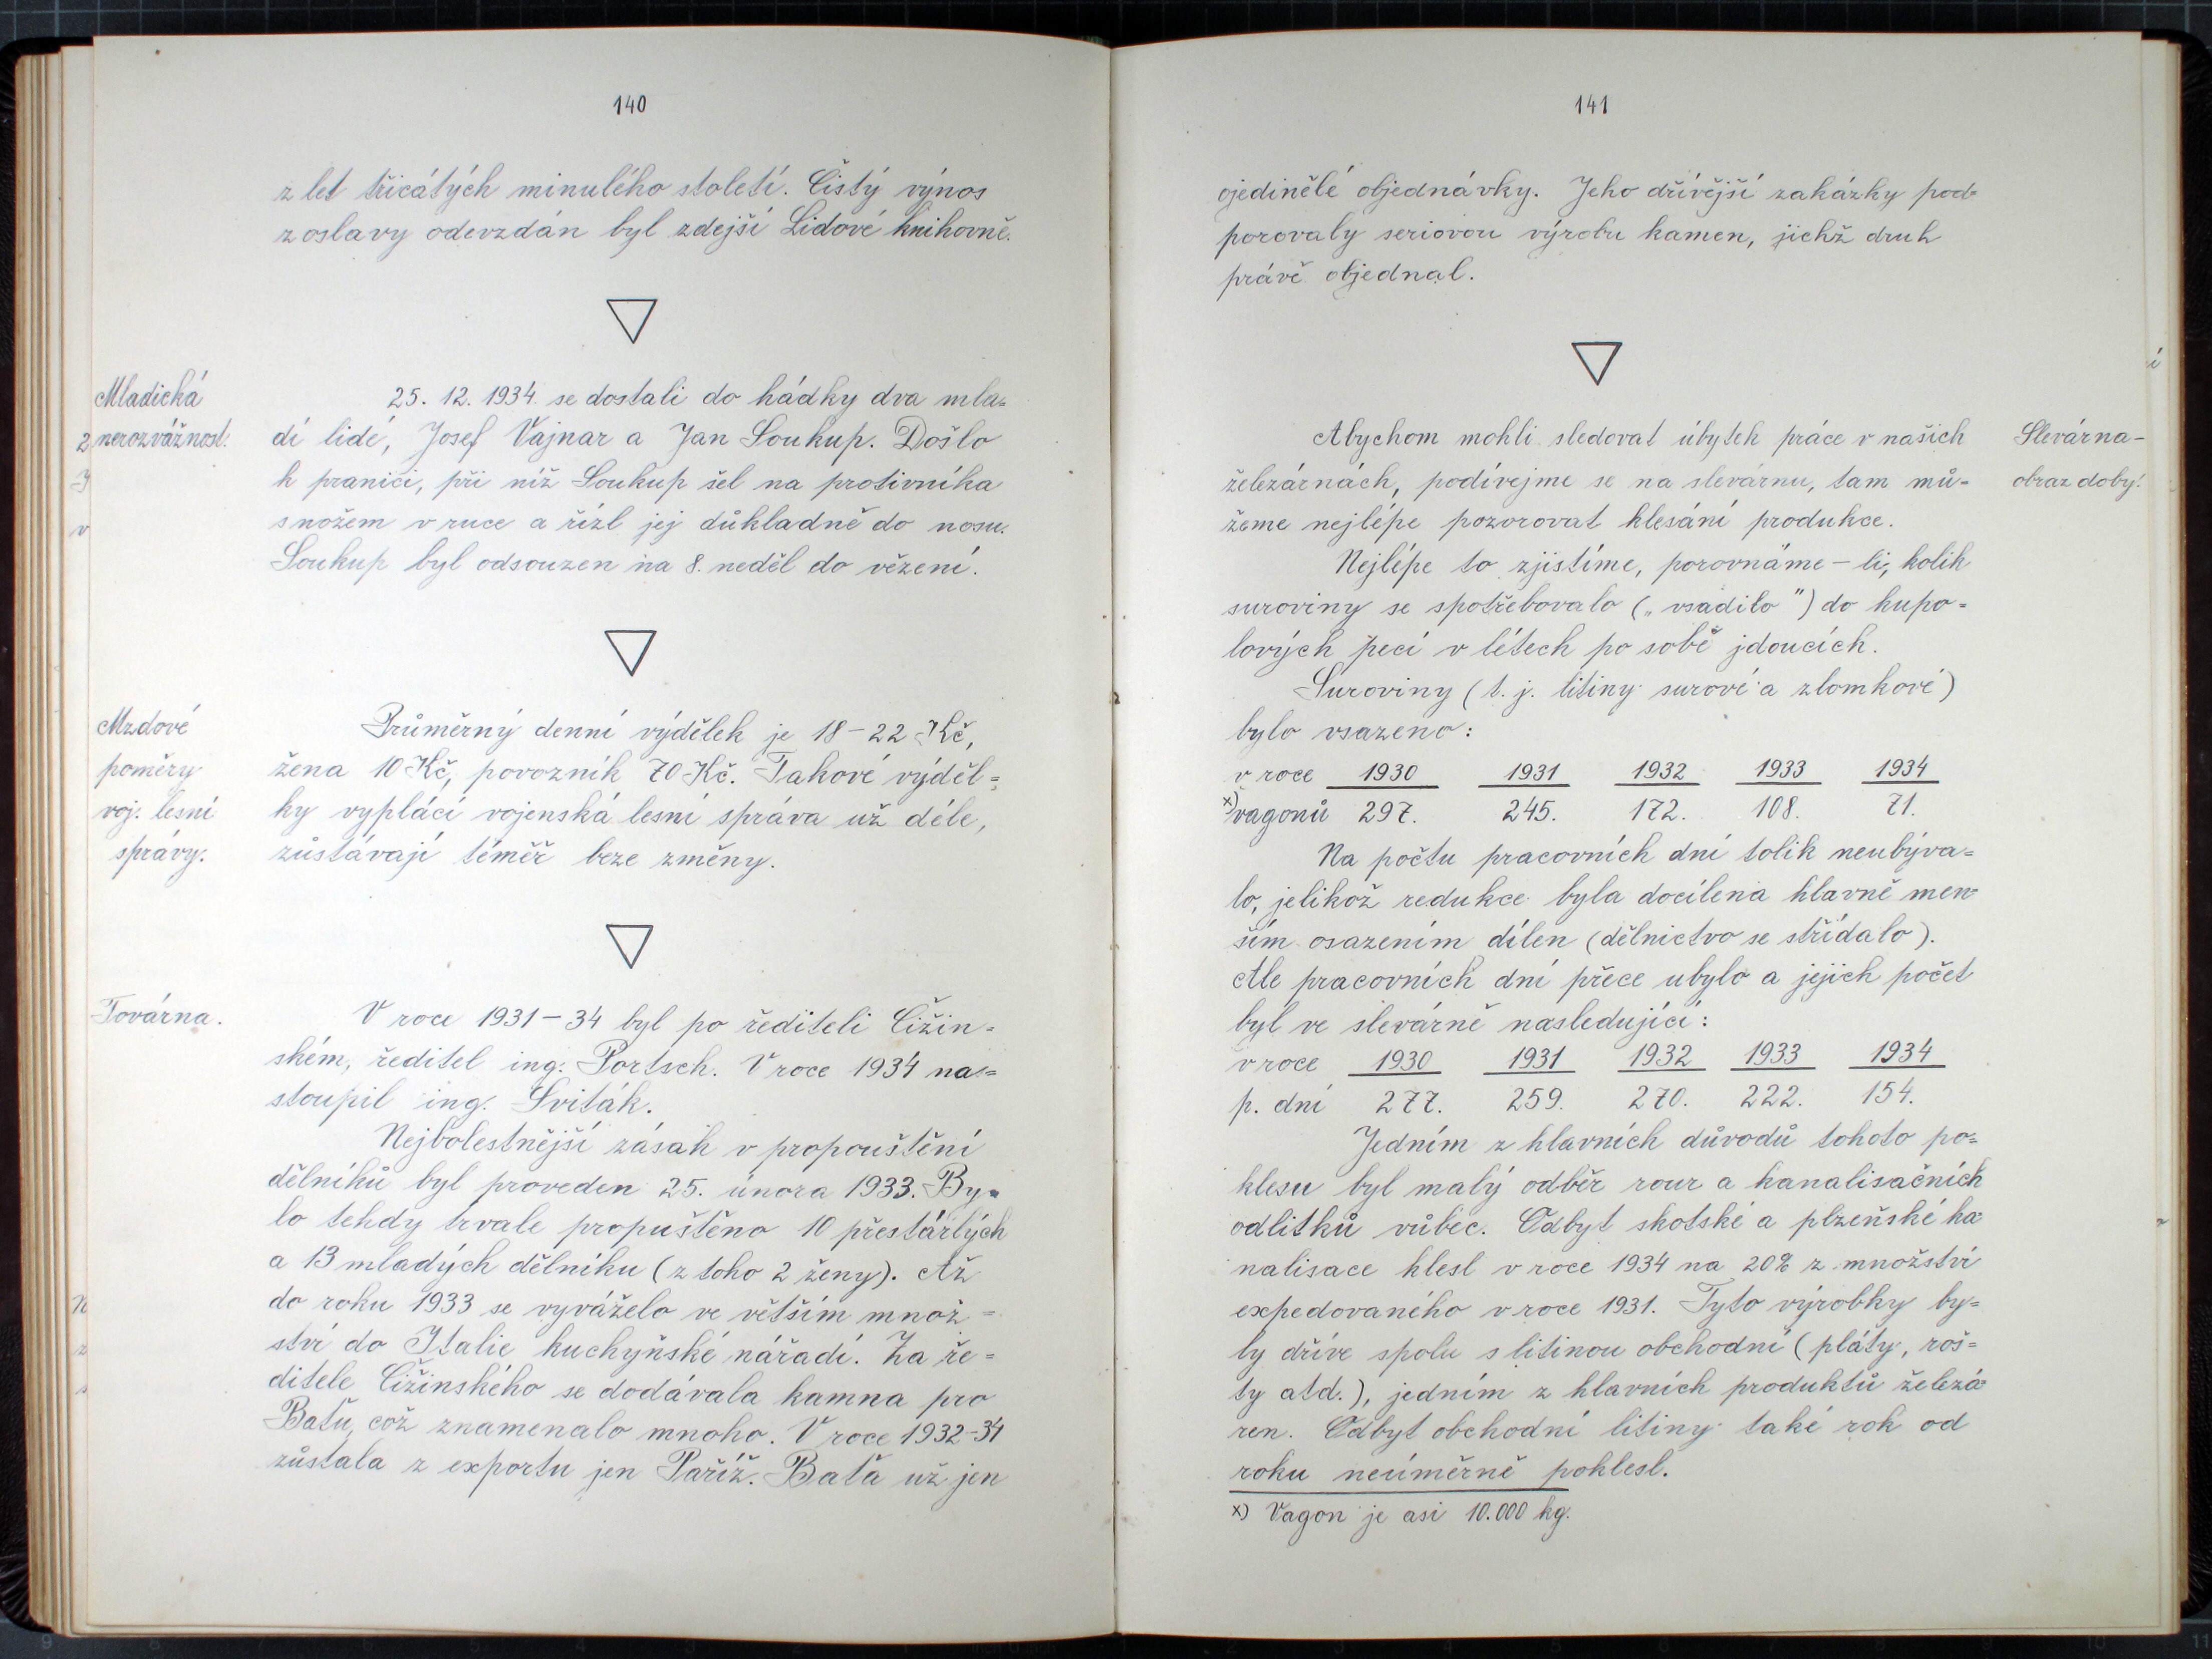 140
z let třicátých minulého století. Čistý výnos
z oslavy odevzdán byl zdejší Lidové knihovně.
Mladická
nerozvážnost.
25. 12. 1934 se dostali do hádky dva mla=
dí lidé, Josef Vajnar a Jan Soukup. Došlo
k pranici, při níž Soukup šel na protivníka
s nožem v ruce a řízl jej důkladně do nosu.
Soukup byl odsouzen na 8. neděl do vězení.
Mzdové
poměry
voj. lesní
správy.
Průměrný denní výdělek je 18-22 Kč,
žena 10 Kč, povozník 70 Kč. Takové výděl=
ky vyplácí vojenská lesní správa už déle,
zůstávají téměř beze změny.
Továrna.
V roce 1931-34 byl po řediteli Čižin=
ském, ředitel ing. Portsch. V roce 1934 nas=
stoupil ing. Sviták.
Nejbolestnější zásah v propouštění
dělníků byl proveden 25. února 1933. By=
lo tehdy trvale propuštěno 10 přestárlých
a 13 mladých dělníku (z toho 2 ženy). Až
do roku 1933 se vyváželo ve větším množ=
ství do Italie kuchyňské nářadí. Za ře=
ditele Čižinského se dodávala kamna pro
Baťu, což znamenalo mnoho. V roce 1932-34
zůstala z exportu jen Paříž. Baťa už jen
141
ojedinělé objednávky. Jeho dřívější zakázky pod=
porovaly seriovou výrobu kamen, jichž druh
právě objednal.
Slévárna-
obraz doby!
Abychom mohli sledovat úbytek práce v našich
železárnách, podívejme se na slevárnu, tam mů=
žeme nejlépe pozorovat klesání produkce.
Nejlépe to zjistíme, porovnáme-li, kolik
suroviny se spotřebovalo („vsadilo") do kupo=
lových pecí v létech po sobě jdoucích.
Suroviny (t. j. litiny surové a zlomkové)
bylo vsazeno:
v roce 1930 1931 1932 1933 1934
x) vagonů 297. 245. 172. 108. 71.
Na počtu pracovních dní tolik neubýva=
lo, jelikož redukce byla docílena hlavně men=
ším osazením dílen (dělnictvo se střídalo).
Ale pracovních dní přece ubylo a jejich počet
byl ve slevárně nasledující:
v roce 1930 1931 1932 1933 1934
p. dní 277. 259. 270. 222. 154.
Jedním z hlavních důvodů tohoto po=
klesu byl malý odběr rour a kanalisačních
odlitků vůbec. Odbyt skotské a plzeňské ka=
nalisace klesl v roce 1934 na 20% z množství
expedovaného v roce 1931. Tyto výrobky by=
ly dříve spolu s litinou obchodní (pláty, roš=
ty atd.), jedním z hlavních produktů železá=
ren. Odbyt obchodní litiny také rok od
roku neúměrně poklesl.
x) Vagon je asi 10.000 kg.